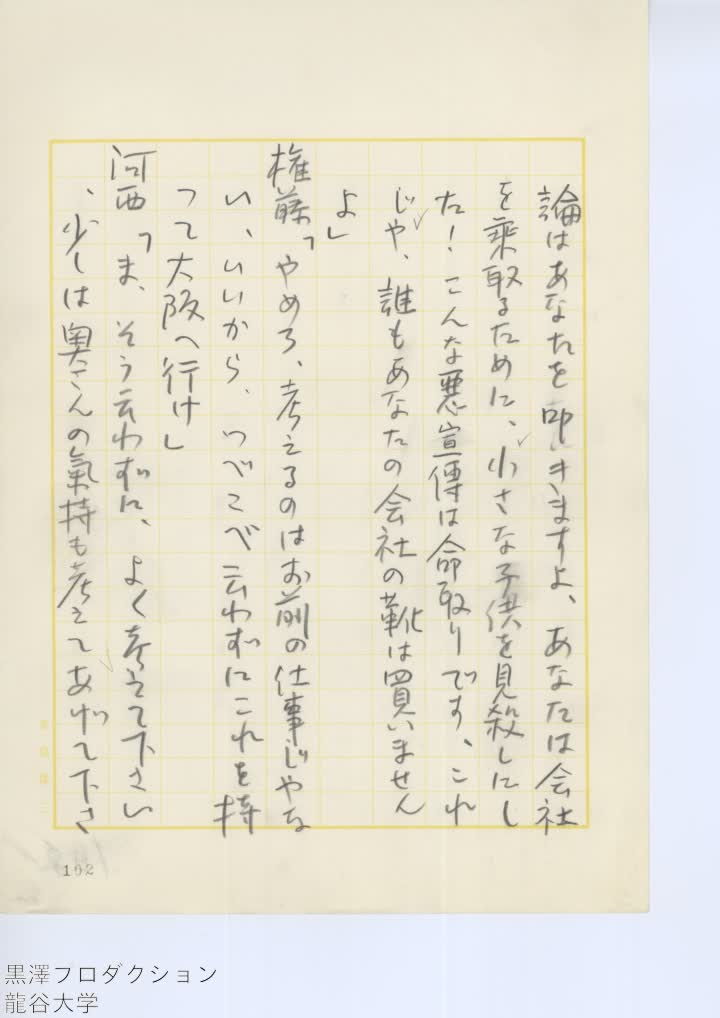 論はあなたを叩きますよ、あなたは会社
を乗取るために、小さな子供を見殺しにし
た！こんな悪宣傳は命取りです、これ
じゃ、誰もあなたの会社の靴は買いません
よ」
権藤「やめろ、考えるのはお前の仕事じゃな
い、いいから、つべこべ云わずにこれを持
って大阪へ行け」
河西「ま、そう云わずに、よく考えて下さい
、少しは奥さんの氣持も考えてあげて下さ
102
黒澤プロダクション
龍谷大学